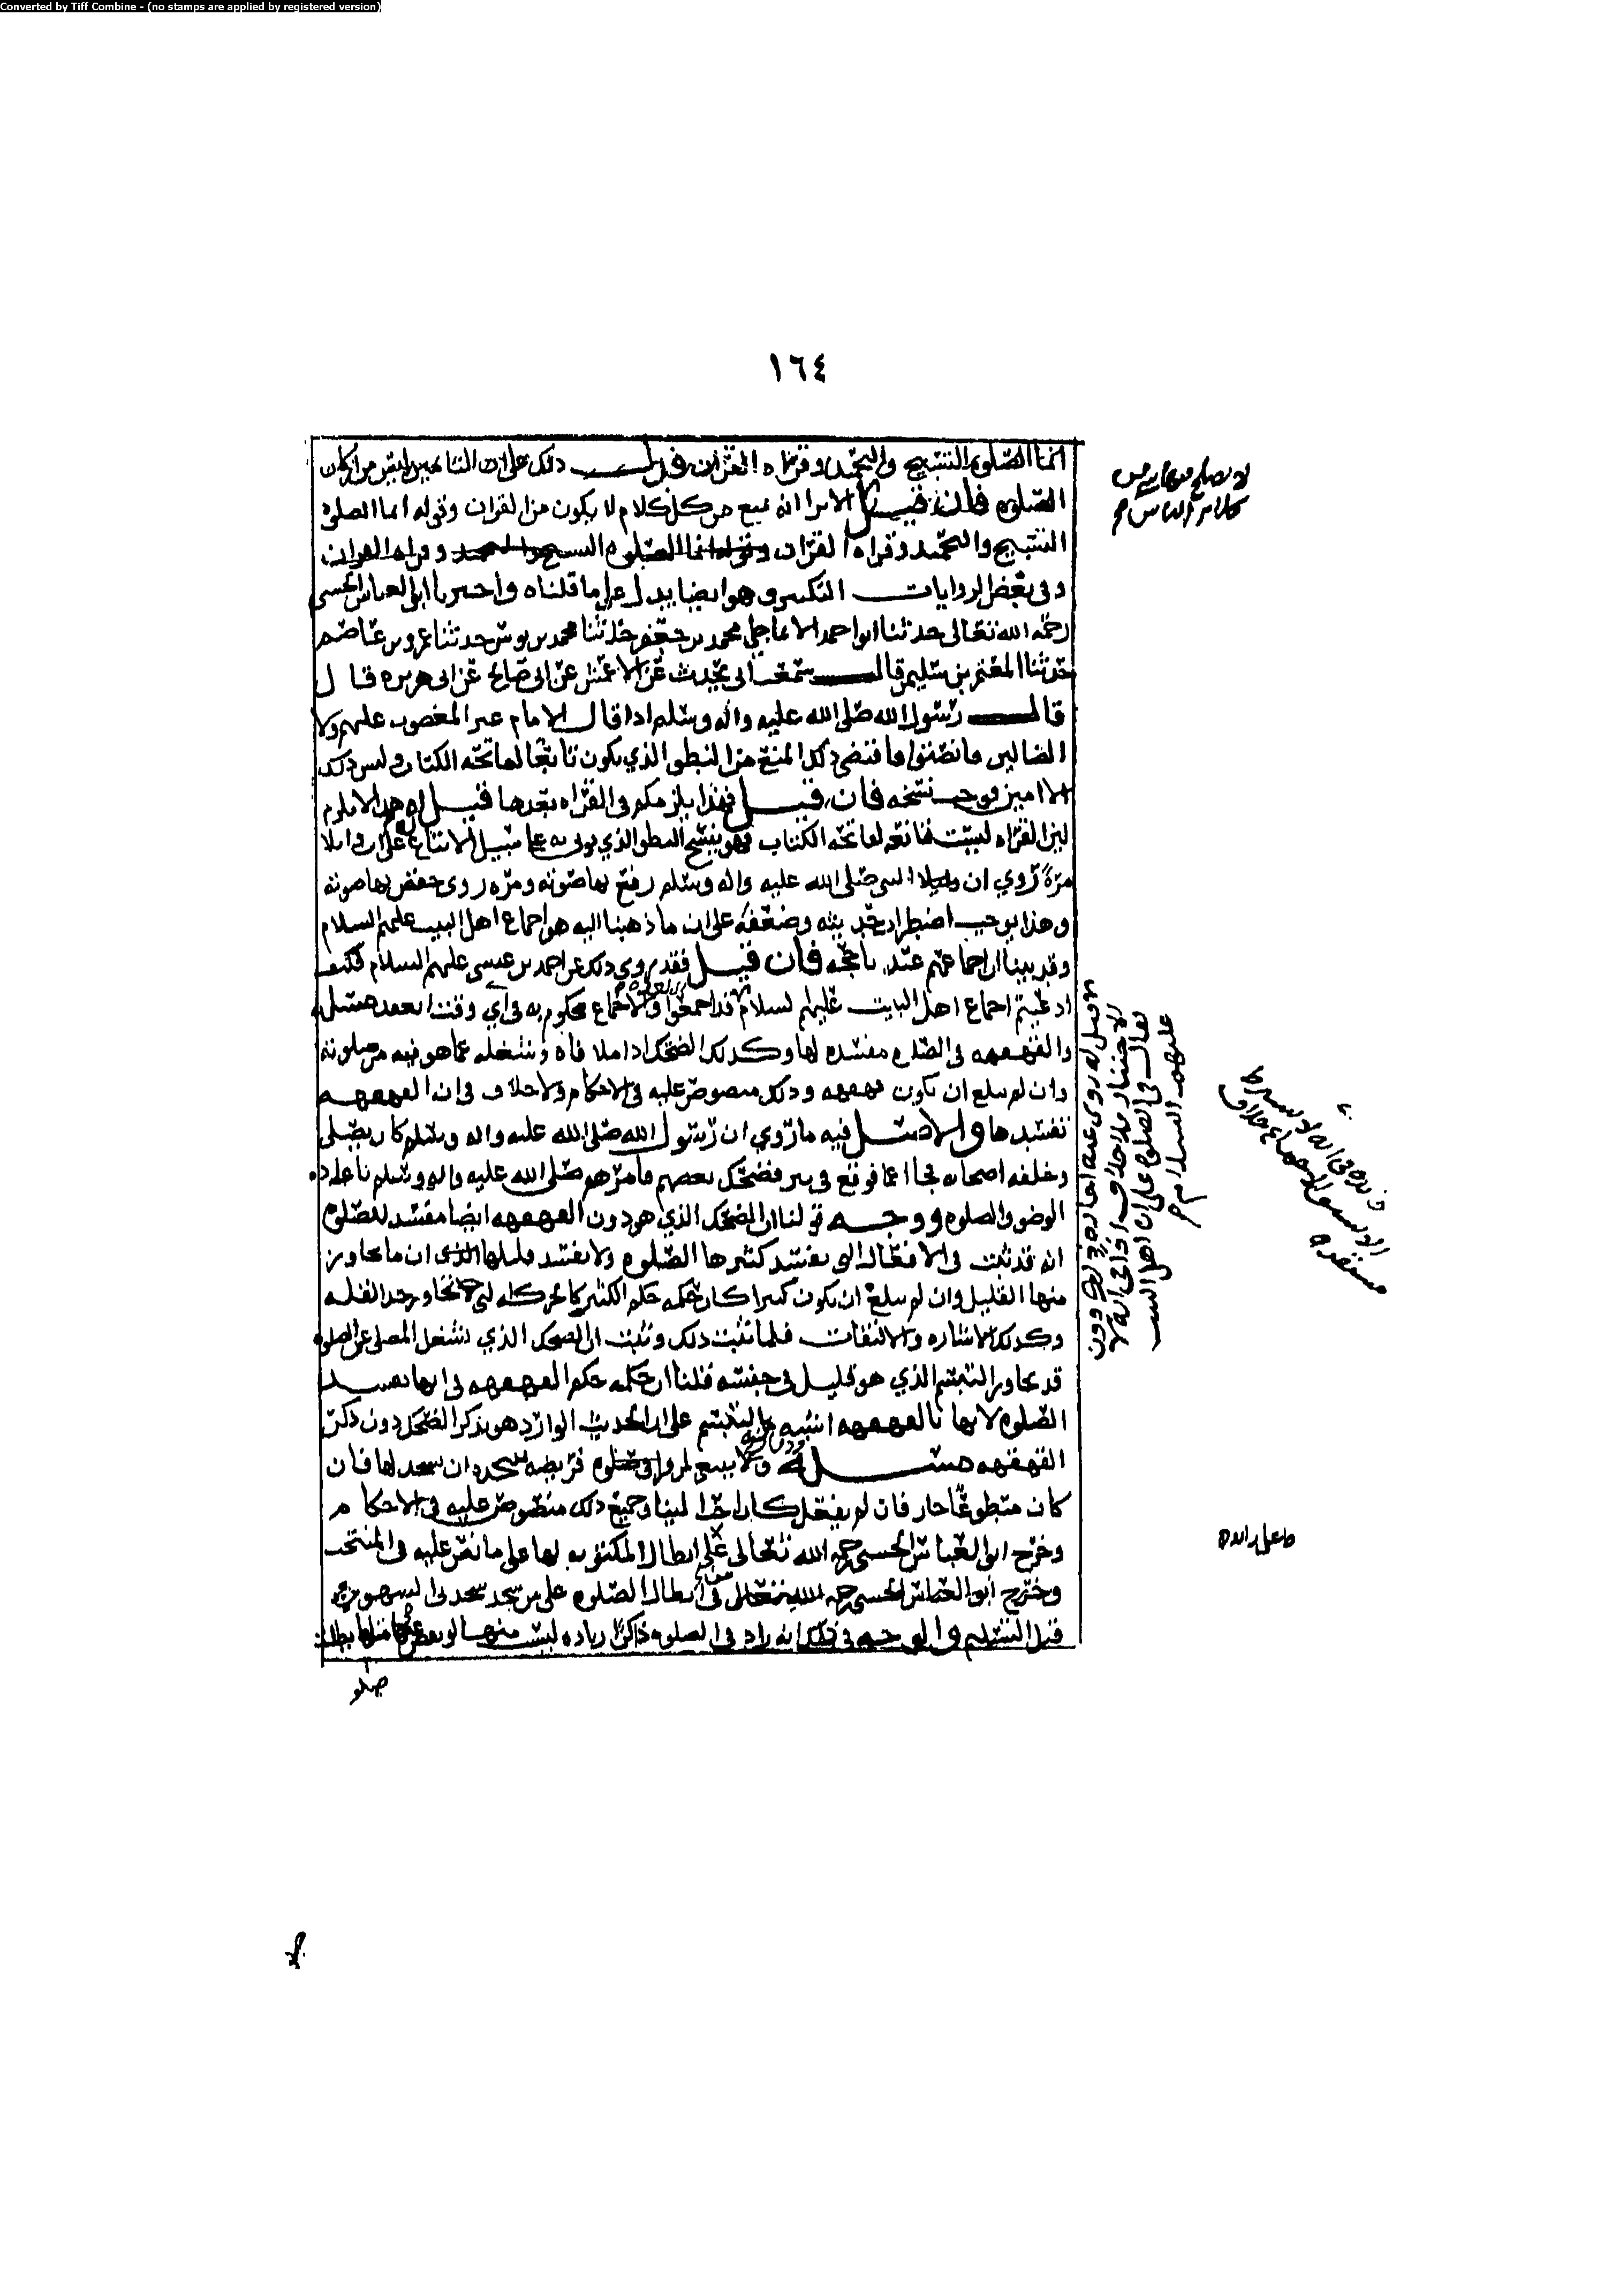 Converted by Tiff Combine - (no stamps are applied by registered version)
١٦٤
انما الصلوه التسبيح والتحميد وقراه القران فدل ذلك على ان التامين ليس من اركان
الصلوه فان قيل الامر انه منع من كل كلام لا يكون من القران وقوله انما الصلوه
التسبيح والتحميد وقراه القران وقوله انما الصلوه التسبيح والتحميد وقراه القران
وفي بعض الروايات التكبير وهو ايضا يدل على ما قلناه واخبرنا ابو العباس الحسني
رحمه الله تعالى حدثنا ابو احمد الانماطي محمد بن جعفر حدثنا محمد بن يونس حدثنا عمرو بن عاصم
حدثنا المعتمر بن سليمن قال سمعت ابي يحدث عن الاعمش عن ابي صالح عن ابي هريره قال
قال رسول الله صلى الله عليه واله وسلم اذا قال الامام غير المغضوب عليهم ولا
الضالين فانصتوا فاقتضى ذلك المنع من النطق الذي يكون تابعا لفاتحه الكتاب وليس ذلك
الا امين فوجب نسخه فان قيل فهذا يلزمكم في القراه بعدها قيل له هذا لا يلزم
لان القراه ليست تابعه لفاتحه الكتاب فهو ينسخ النطق الذي يوتى به على سبيل الاتباع على ان وايلا
مرة روي ان النبي صلى الله عليه واله وسلم رفع بها صوته ومره روى خفض بها صوته
وهذا يوجب اضطراب حديثه وضعفه على ان ما ذهبنا اليه هو اجماع اهل البيت عليهم السلام
وقد بينا ان اجماعهم عندنا حجه فان قيل فقد روي ذلك عن احمد بن عيسى عليهم السلام فكيف
ادعيتم اجماع اهل البيت عليهم السلام قد اجمعوا والاجماع محكوم به في اي وقت انعقد مسئله
والقهقهه في الصلوه مفسده لها وكذلك الضحك اذا ملا فاه وشغله عما هو فيه من صلوته
وان لم يبلغ ان يكون قهقهه وذلك منصوص عليه في الاحكام ولا خلاف في ان القهقهه
تفسدها والاصل فيه ما روي ان رسول الله صلى الله عليه واله وسلم كان يصلي
وخلفه اصحابه فجا اعمى فوقع في بير فضحك بعضهم فامرهم صلى الله عليه واله وسلم باعاده
الوضو والصلوه ووجه قولنا ان الضحك الذي هو دون القهقهه ايضا مفسد للصلوه
انه قد ثبت في الافعال التي يفسد كثيرها الصلوه ولا يفسد قليلها ان ما تجاوز
منها القليل وان لم يبلغ ان يكون كثيرا كان حكمه حكم الكثير كالحركه التي تجاوز حد القله
وكذلك الاشاره والالتفات فلما ثبت ذلك وثبت ان الضحك الذي يشغل المصلي عن الصلوه
قد تجاوز التبسم الذي هو قليل في جنسه قلنا ان حكمه حكم القهقهه في انها تفسد
الصلوه لانها بالقهقهه اشبه بالتبسم على ان الحديث الوارد هو بذكر الضحك دون ذكر
القهقهه مسئله ولا ينبغي لمن قرا في صلوه فريضه السجده ان يسجد لها فان
كان متطوعا جاز فان لم يفعل كان احب الينا وجميع ذلك منصوص عليه في الاحكام
وخرج ابو العباس الحسني رحمه الله تعالى على ابطال المكتوبه لها على ما نص عليه في المنتخب
وخرج ابو العباس الحسني رحمه الله تعالى في ابطال الصلوه على من سجد سجدتي السهو
قبل التسليم والوجه في ذلك انه زاد في الصلوه ذاكرا زياده ليست منها
صلو
لا يصلح فيها شي من
كلام الناس
قيل له روى عنه
الاختيار فلا خلاف
تعالى في الصلوه على ان اهل البيت
عليهم السلام